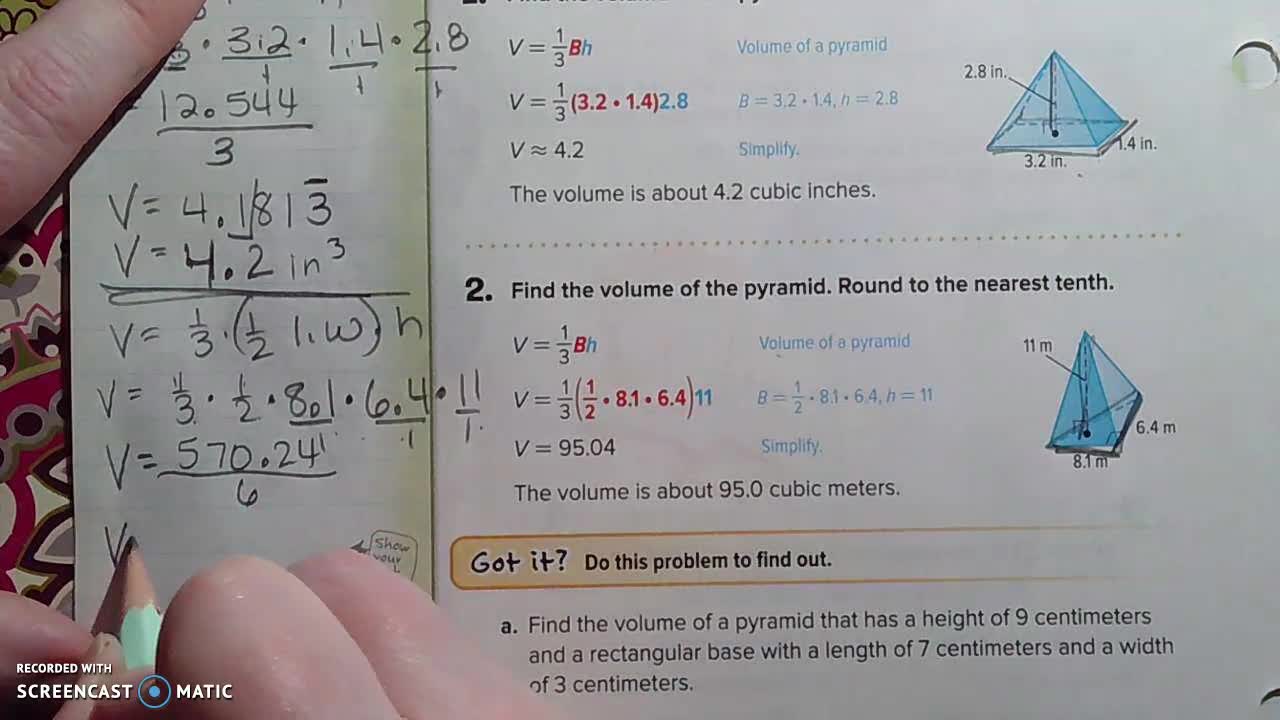 3 · 3.2 · 1.4 · 2.8
1 1 1
12.544
3
V = 4.1813̅
V = 4.2 in³
V = 1/3 · (1/2 l · w) h
V = 1/3 · 1/2 · 8.1 · 6.4 · 11
1 1
V = 570.24
6
V
show
your
V = 1/3 Bh Volume of a pyramid
V = 1/3 (3.2 • 1.4)2.8 B = 3.2 • 1.4, h = 2.8
V ≈ 4.2 Simplify.
The volume is about 4.2 cubic inches.
2.8 in.
1.4 in.
3.2 in.
2. Find the volume of the pyramid. Round to the nearest tenth.
V = 1/3 Bh Volume of a pyramid
V = 1/3 (1/2 • 8.1 • 6.4)11 B = 1/2 • 8.1 • 6.4, h = 11
V = 95.04 Simplify.
The volume is about 95.0 cubic meters.
11 m
6.4 m
8.1 m
Got it? Do this problem to find out.
a. Find the volume of a pyramid that has a height of 9 centimeters
and a rectangular base with a length of 7 centimeters and a width
of 3 centimeters.
RECORDED WITH
SCREENCAST MATIC